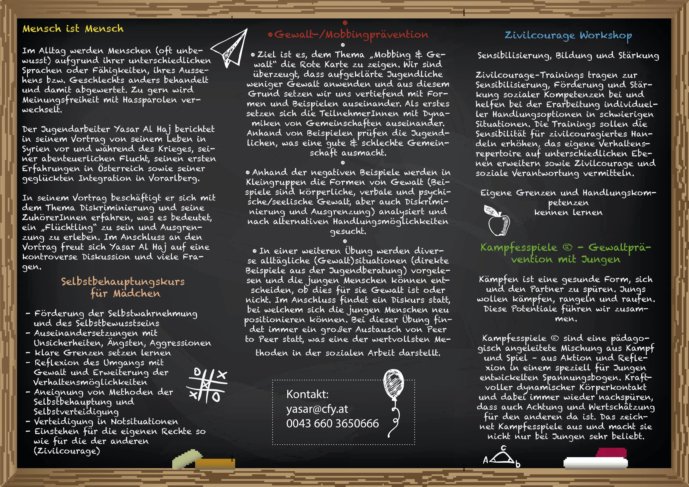 Mensch ist Mensch
Im Alltag werden Menschen (oft unbe-
wusst) aufgrund ihrer unterschiedlichen
Sprachen oder Fähigkeiten, ihres Ausse-
hens bzw. Geschlechts anders behandelt
und damit abgewertet. Zu gern wird
Meinungsfreiheit mit Hassparolen ver-
wechselt.
Der Jugendarbeiter Yasar Al Haj berichtet
in seinem Vortrag von seinem Leben in
Syrien vor und während des Krieges, sei-
ner abenteuerlichen Flucht, seinen ersten
Erfahrungen in Österreich sowie seiner
geglückten Integration in Vorarlberg.
In seinem Vortrag beschäftigt er sich mit
dem Thema Diskriminierung und seine
ZuhörerInnen erfahren, was es bedeutet,
ein „Flüchtling" zu sein und Ausgren-
zung zu erleben. Im Anschluss an den
Vortrag freut sich Yasar Al Haj auf eine
kontroverse Diskussion und viele Fra-
gen.
Selbstbehauptungskurs
für Mädchen
- Förderung der Selbstwahrnehmung
und des Selbstbewusstseins
- Auseinandersetzungen mit
Unsicherheiten, Ängsten, Aggressionen
- klare Grenzen setzen lernen
- Reflexion des Umgangs mit
Gewalt und Erweiterung der
Verhaltensmöglichkeiten
- Aneignung von Methoden der
Selbstbehauptung und
Selbstverteidigung
- Verteidigung in Notsituationen
- Einstehen für die eigenen Rechte so
wie für die der anderen
(Zivilcourage)
• Gewalt-/Mobbingprävention
• Ziel ist es, dem Thema „Mobbing & Ge-
walt" die Rote Karte zu zeigen. Wir sind
überzeugt, dass aufgeklärte Jugendliche
weniger Gewalt anwenden und aus diesem
Grund setzen wir uns vertiefend mit For-
men und Beispielen auseinander. Als erstes
setzen sich die TeilnehmerInnen mit Dyna-
miken von Gemeinschaften auseinander.
Anhand von Beispielen prüfen die Jugend-
lichen, was eine gute & schlechte Gemein-
schaft ausmacht.
• Anhand der negativen Beispiele werden in
Kleingruppen die Formen von Gewalt (Bei-
spiele sind körperliche, verbale und psychi-
sche/seelische Gewalt, aber auch Diskrimi-
nierung und Ausgrenzung) analysiert und
nach alternativen Handlungsmöglichkeiten
gesucht.
• In einer weiteren Übung werden diver-
se alltägliche (Gewalt)situationen (direkte
Beispiele aus der Jugendberatung) vorgele-
sen und die jungen Menschen können ent-
scheiden, ob dies für sie Gewalt ist oder
nicht. Im Anschluss findet ein Diskurs statt,
bei welchem sich die jungen Menschen neu
positionieren können. Bei dieser Übung fin-
det immer ein großer Austausch von Peer
to Peer statt, was eine der wertvollsten Me-
thoden in der sozialen Arbeit darstellt.
Kontakt:
yasar@cfy.at
0043 660 3650666
Zivilcourage Workshop
Sensibilisierung, Bildung und Stärkung
Zivilcourage-Trainings tragen zur
Sensibilisierung, Förderung und Stär-
kung sozialer Kompetenzen bei und
helfen bei der Erarbeitung individuel-
ler Handlungsoptionen in schwierigen
Situationen. Die Trainings sollen die
Sensibilität für zivilcouragiertes Han-
deln erhöhen, das eigene Verhaltens-
repertoire auf unterschiedlichen Ebe-
nen erweitern sowie Zivilcourage und
soziale Verantwortung vermitteln.
Eigene Grenzen und Handlungskom-
petenzen
kennen lernen
Kampfesspiele © - Gewaltprä-
vention mit Jungen
Kämpfen ist eine gesunde Form, sich
und den Partner zu spüren. Jungs
wollen kämpfen, rangeln und raufen.
Diese Potentiale führen wir zusam-
men.
Kampfesspiele © sind eine pädago-
gisch angeleitete Mischung aus Kampf
und Spiel – aus Aktion und Refle-
xion in einem speziell für Jungen
entwickelten Spannungsbogen. Kraft-
voller dynamischer Körperkontakt
und dabei immer wieder nachspüren,
dass auch Achtung und Wertschätzung
für den anderen da ist. Das zeich-
net Kampfesspiele aus und macht sie
nicht nur bei Jungen sehr beliebt.
A c b